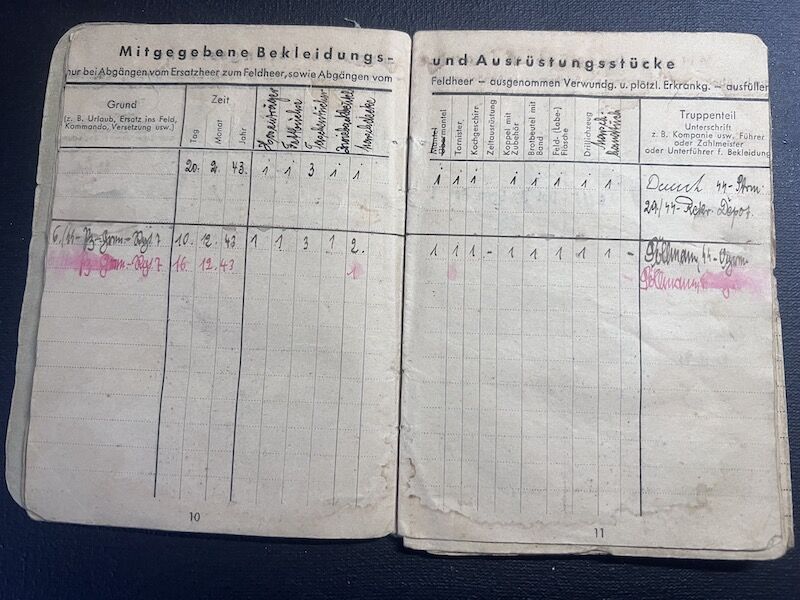 Mitgegebene Bekleidungs-
nur bei Abgängen vom Ersatzheer zum Feldheer, sowie Abgängen vom
Grund
(z. B. Urlaub, Ersatz ins Feld,
Kommando, Versetzung usw.)
Zeit
Tag
Monat
Jahr
Hosenträger
20. 2. 43. 1 1 3 1 1
6./SS-Pz-Gren.-Rgt. 7 10. 12. 43 1 1 3 1 2.
Pz-Gren.-Rgt. 7 16. 12. 43 1
10
und Ausrüstungsstücke
Feldheer – ausgenommen Verwundg. u. plötzl. Erkrankg. – ausfüllen
Mantel
Übermantel
Tornister
Kochgeschirr
Zeltausrüstung
Koppel mit
Zubehör
Brotbeutel mit
Band
Feld- (Labe-)
Flasche
Drillichzeug
Truppenteil
Unterschrift
z. B. Kompanie usw. Führer
oder Zahlmeister
oder Unterführer f. Bekleidung
1 1 1 1 1 1 1 1 1
SS-
29/SS-Rekr. Depot.
1 1 1 - 1 1 1 1 1 - SS-
11